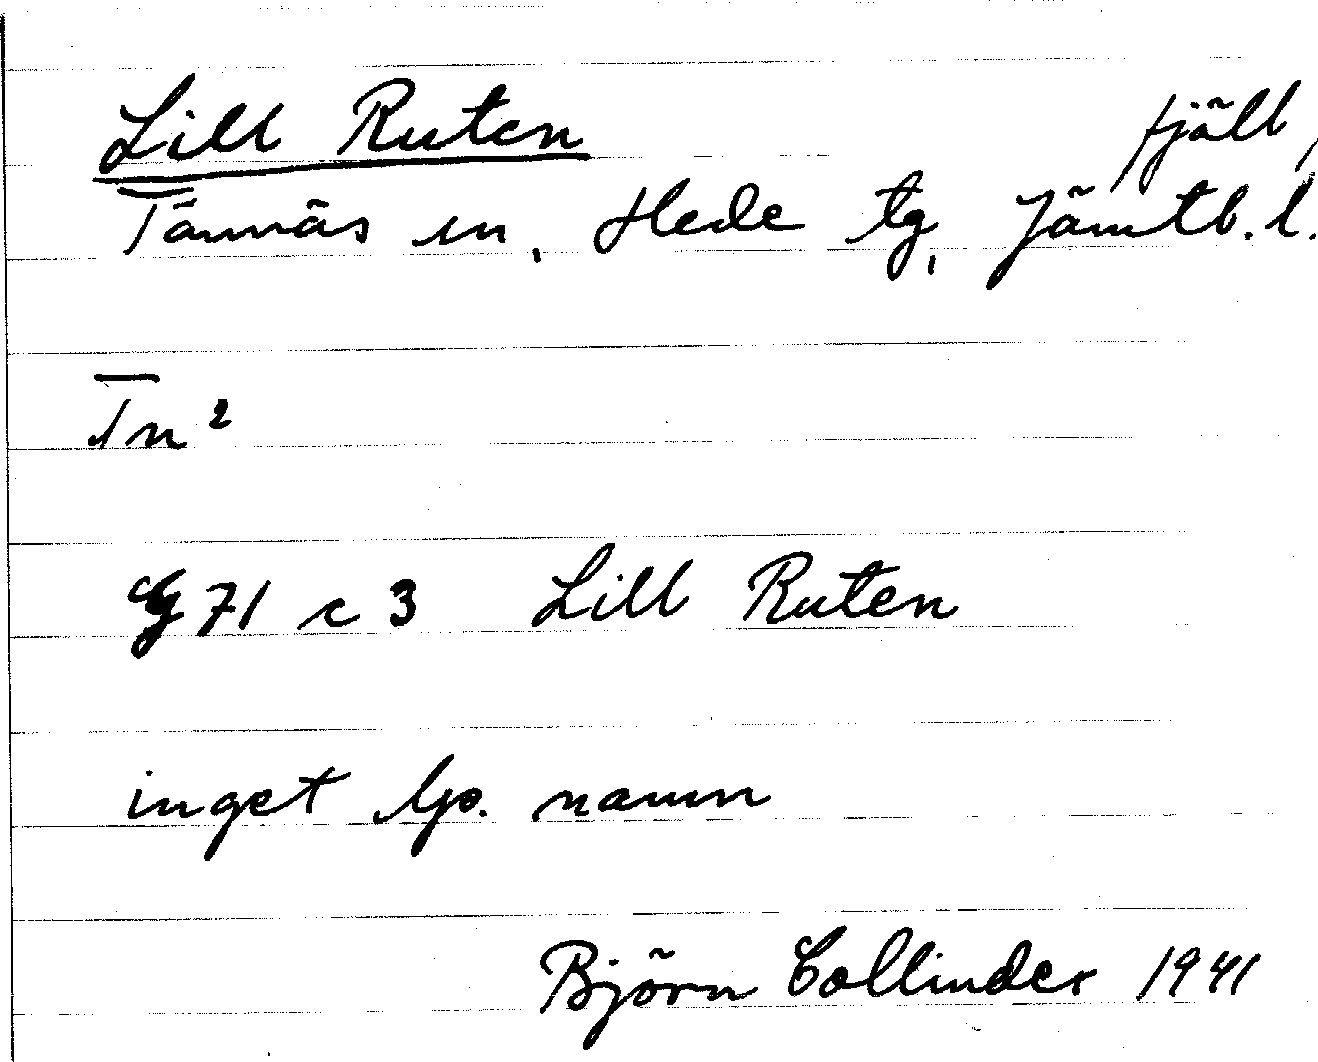 Lill Ruten fjäll,
Tännäs sn, Hede tg, Jämtl. l.
Tn²
G 71 c 3 Lill Ruten
inget lp. namn
Björn Collinder 1941